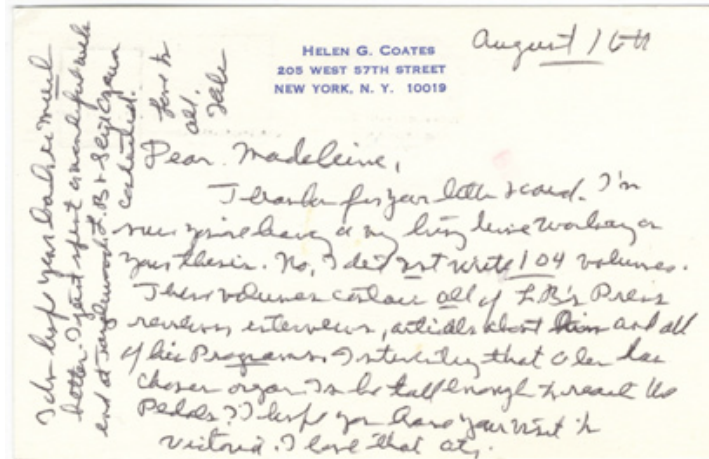 HELEN G. COATES
205 WEST 57TH STREET
NEW YORK, N. Y. 10019
August 16th
Dear Madeleine,
Thanks for your letter & card. I'm
sure you're having a very busy time working on
your thesis. No, I did not write 104 volumes.
These volumes contain all of L.B's Press
reviews, interviews, articles about him and all
of his Programs. Interesting that Alan has
chosen organ. Is he tall enough to reach the
Pedals? I hope you have your visit to
Victoria. I love that city.
I do hope your back is much
better. I just spent a wonderful week
end at Tanglewood. L.B & Seiji Ozawa
conducted.
Love to
all,